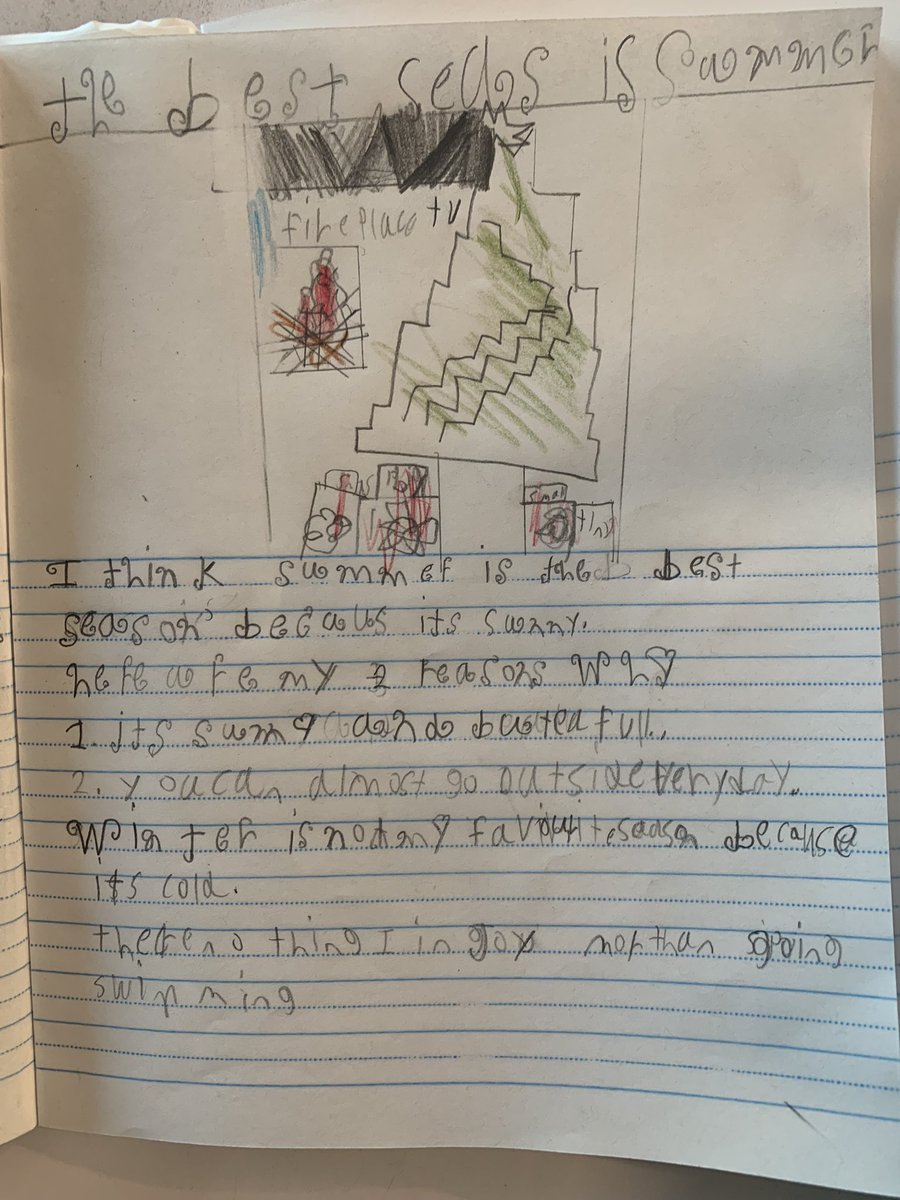 the best seas is Summer
fireplace tv
small tiny
I think summer is the best
season becaus its sunny.
here are my 2 reasons why
1. its sunny and beuteafull.
2. you can almost go outside everyday.
Winter is not my faviourite season because
its cold.
there no thing I in goy mor than going
swimming